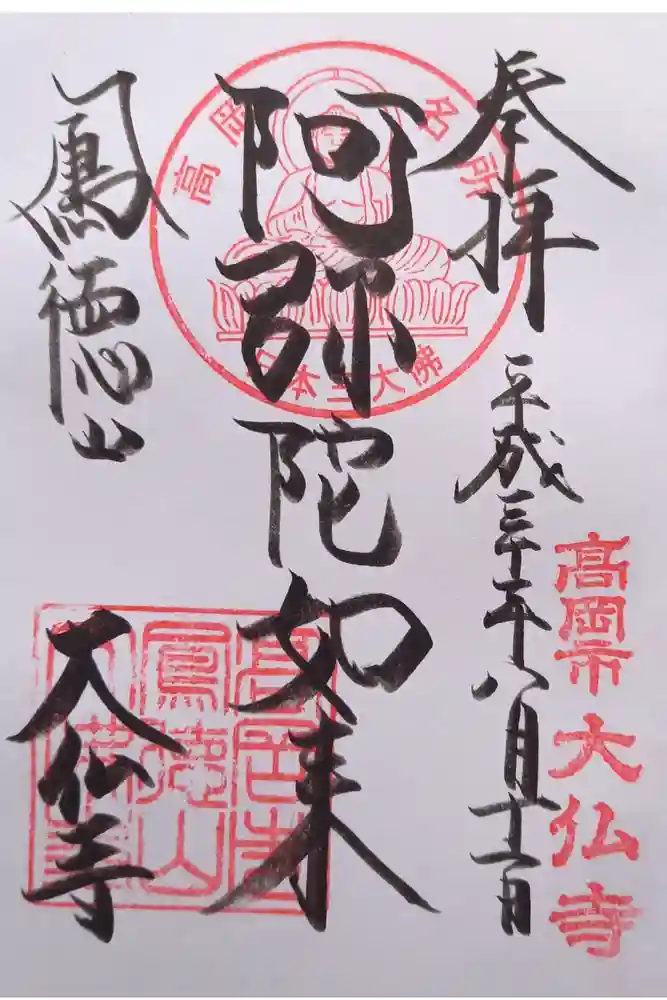 奉拝
平成三十年八月十二日
高岡市大仏寺
阿弥陀如来
鳳徳山
大仏寺
高岡名所
日本三大佛
高岡市
鳳徳山
大佛寺